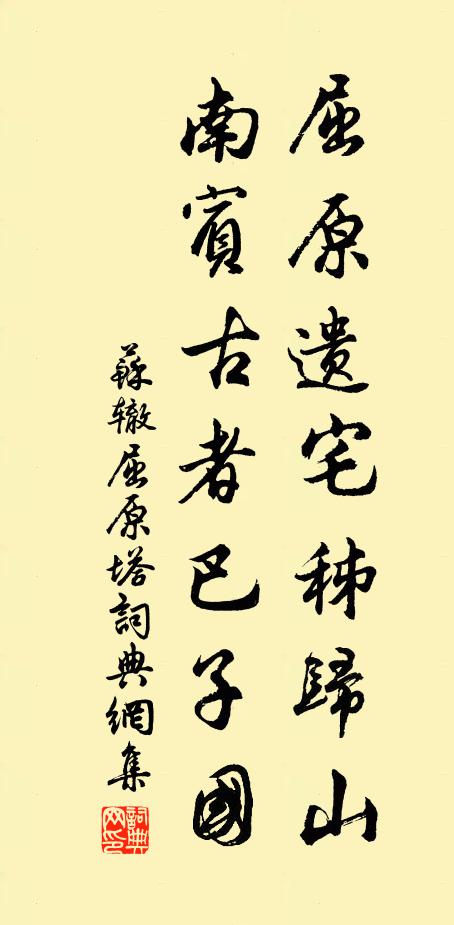 屈原遗宅秭歸山
南賓古者巴子國
蘇辙屈原塔詞典網集
詞典
网印